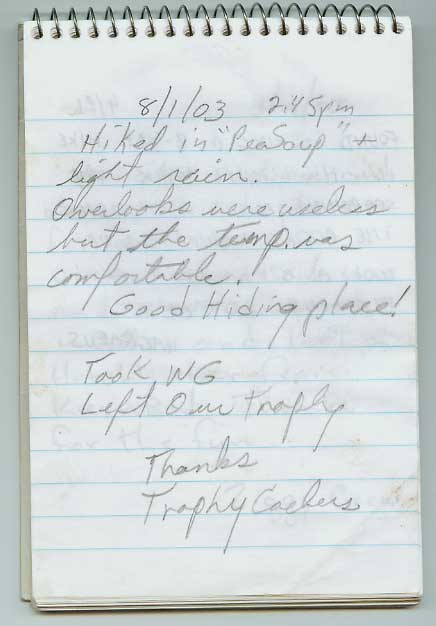 8/1/03 2:45pm
Hiked in "PeaSoup" +
light rain.
Overlooks were useless
but the temp. was
comfortable.
Good Hiding place!
Took WG
Left Our Trophy
Thanks
Trophy Cachers